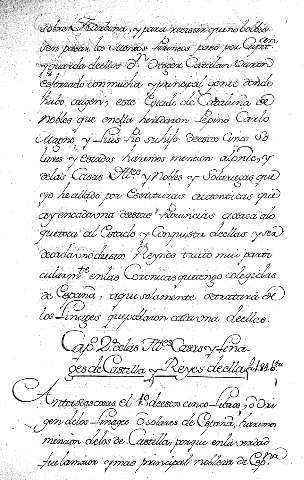 sobre Narbona, y para resistir que no bolbies
sen pasar los Montes Pirineos puso por Capan
guarda de ellos Dn Otger Catalan Varon
esforzado con mucha y principal gente donde
hubo origen, este Estado de Cataluña de
Nobles que en ella heredaron Pepino Carlo
Magno, y Luis Pio su hijo de estos Cinco So
lares y Estados haremos mencion al pnte, y
de las Casas Illes y Nobles y Solariegas que
yo he allado por Escrituras autenticas que
ay en cada una de estas Provincias acerca a lo
que toca al Estado y Conquista de ellas y ser
de cada uno de estos Reynos trato muy parti
cularmte en las Coronicas que tengo colegidas
de España, aqui solamente se tratará de
los Linages que poblaron cada una de ellas.
Capo 2o de las Illes Casas y Lina
ges de Castilla y Reyes de ella
Antes que cosas el 1o de estos cinco Libros, o Ori
gen de los Linages o Solares de España, haremos
mencion de los de Castilla, porque en la verdad
fue la mejor y mas principal nobleza de Espña